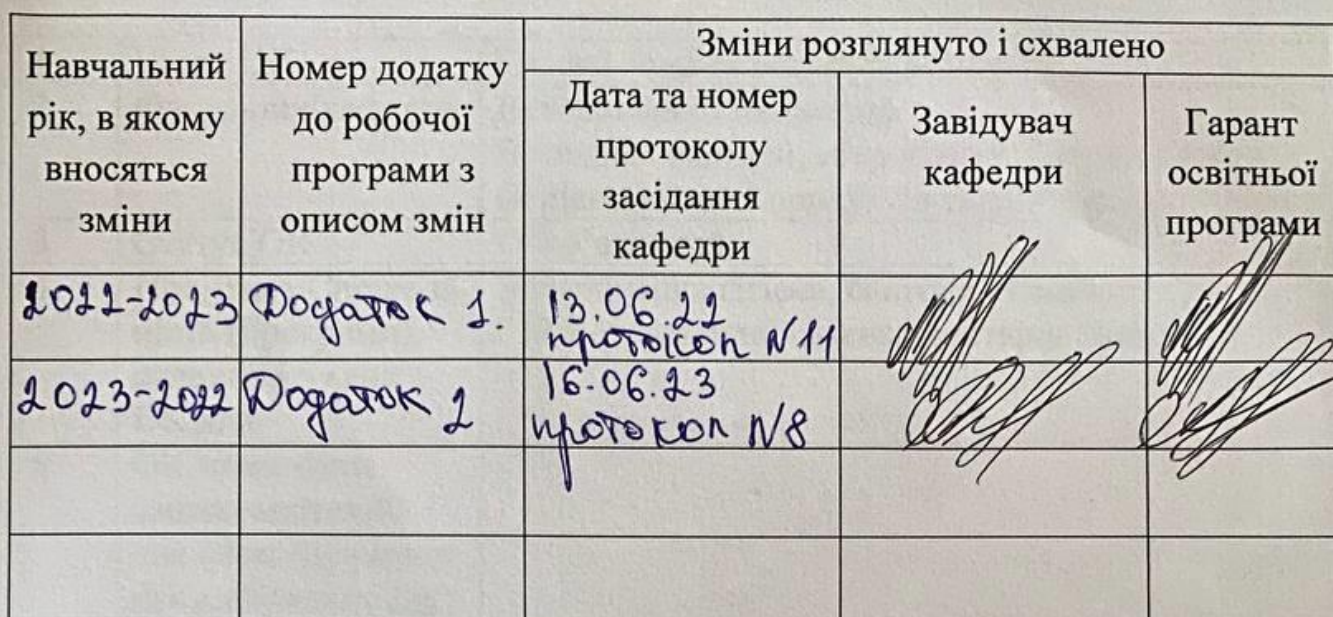 Навчальний рік, в якому вносяться зміни
Номер додатку до робочої програми з описом змін
Зміни розглянуто і схвалено
Дата та номер протоколу засідання кафедри
Завідувач кафедри
Гарант освітньої програми
2022-2023 Додаток 1. 13.06.22
протокол N11
2023-2022 Додаток 2 16.06.23
протокол N8